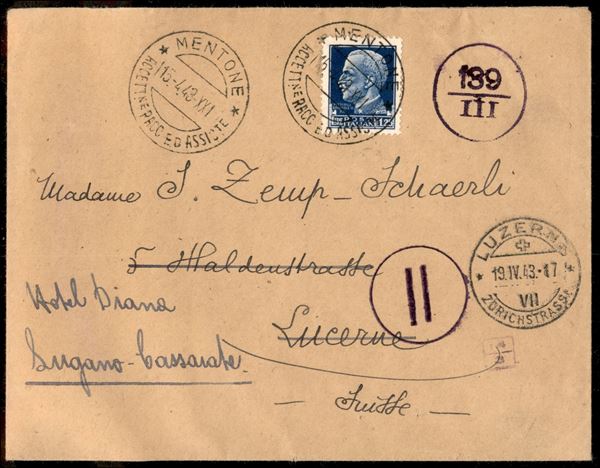 * MENTONE *
15.4.43.XXI
ACCETT.NE RACC. ED ASSICTE
* MENTONE *
ACCETT.NE RACC. ED ASSICTE
139
III
Madame J. Zemp-Schaerli
5 Waldenstrasse
Lucerne
Suisse
II
LUZERN
19.IV.43.-17
VII
ZÜRICHSTRASSE
Hotel Diana
Lugano-Cassarate.